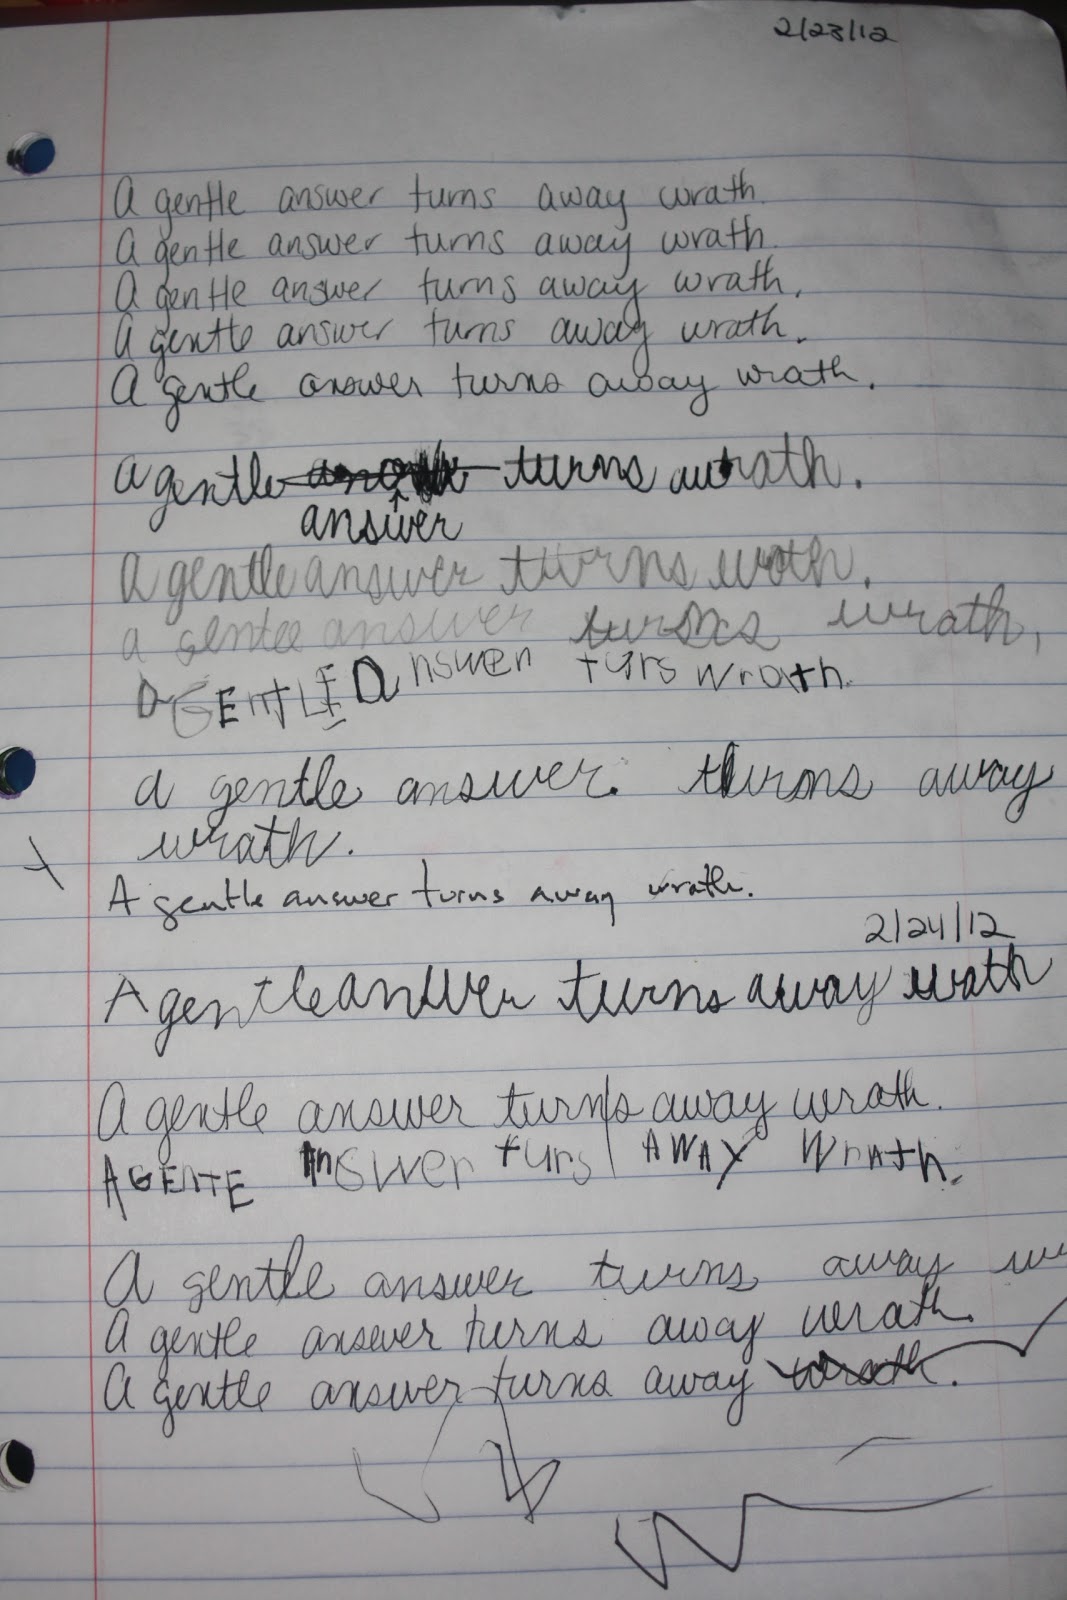 2/23/12
A gentle answer turns away wrath.
A gentle answer turns away wrath.
A gentle answer turns away wrath.
A gentle answer turns away wrath.
A gentle answer turns away wrath.
A gentle turns wrath.
answer
A gentle answer turns wrath.
a gentle answer turns wrath,
a GENTLE answer turs wrath.
a gentle answer. turns away
wrath.
A gentle answer turns away wrath.
2/24/12
A gentle answer turns away wrath
A gentle answer turns away wrath.
AGENTE answer turs AWAY WrATh.
A gentle answer turns away wr
A gentle answer turns away wrath.
A gentle answer turns away wrath.